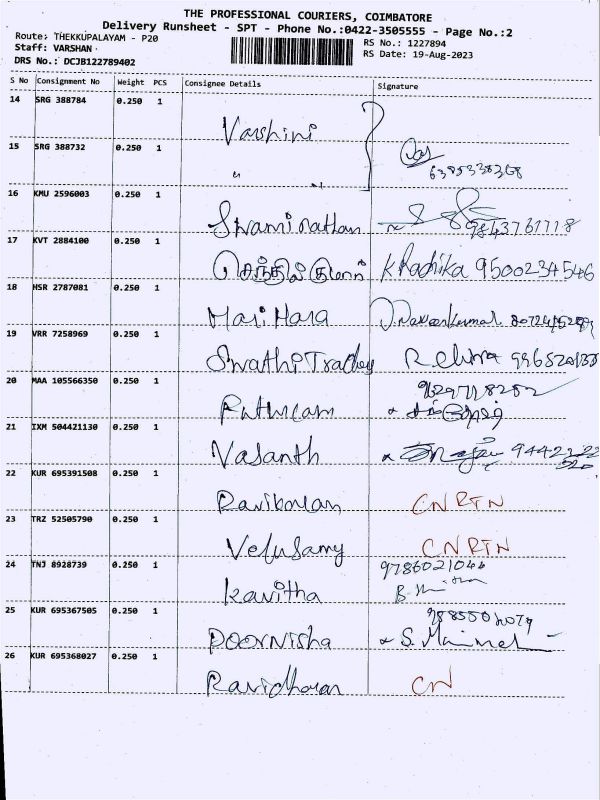 THE PROFESSIONAL COURIERS, COIMBATORE
Delivery Runsheet - SPT - Phone No.:0422-3505555 - Page No.:2
Route: THEKKUPALAYAM - P20
RS No.: 1227894
Staff: VARSHAN
RS Date: 19-Aug-2023
DRS No.: DCJB122789402
S No Consignment No Weight PCS Consignee Details Signature
14 SRG 388784 0.250 1
Varshini
15 SRG 388732 0.250 1
〃
6385338368
16 KMU 2596003 0.250 1
Swaminathan 9843761718
17 KVT 2884100 0.250 1
செந்தில் குமார் K Radhika 9500234546
18 HSR 2787081 0.250 1
Hari Hara
19 VRR 7258969 0.250 1
Swathi
20 MAA 105566350 0.250 1
21 IXM 504421130 0.250 1
Vasanth
22 KUR 695391508 0.250 1
CNRTN
23 TRZ 52505790 0.250 1
Velusamy CNRTN
24 TNJ 8928739 0.250 1
Kavitha
25 KUR 695367505 0.250 1
Poornisha
26 KUR 695368027 0.250 1
Ravidharan CN